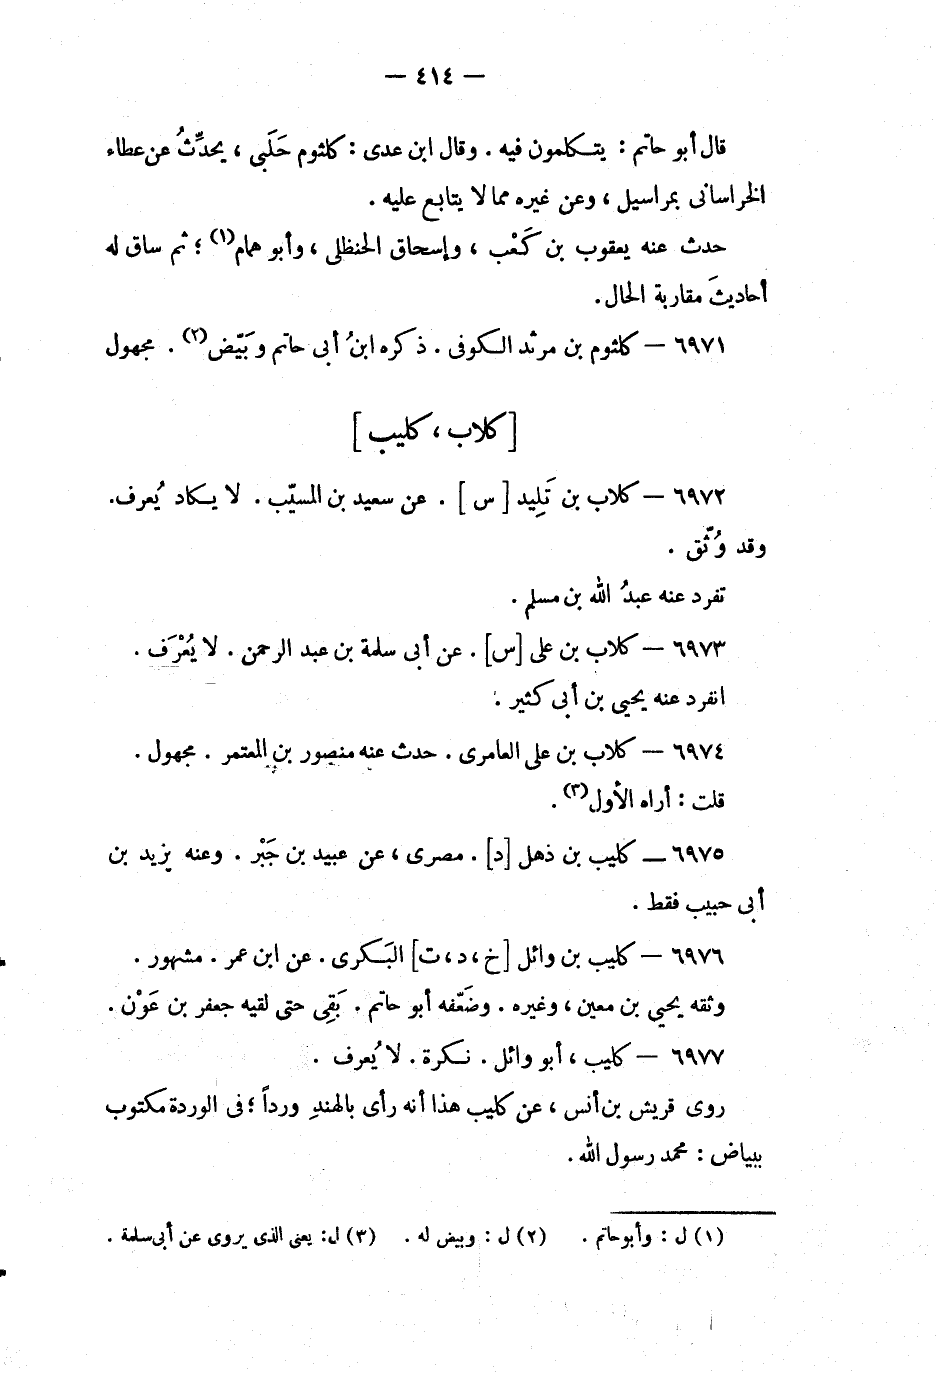 — ٤١٤ —
قال أبو حاتم : يتكلمون فيه . وقال ابن عدى : كلثوم حَلَبى ، يحدِّثُ عن عطاء
الخراسانى بمراسيل ، وعن غيره مما لا يتابع عليه .
حدث عنه يعقوب بن كَعْب ، وإسحاق الحنظلى ، وأبو همام(١) ؛ ثم ساق له
أحاديثَ مقاربة الحال .
٦٩٧١ — كلثوم بن مرثد الكوفى . ذكره ابنُ أبى حاتم وبَيّض(٢) . مجهول
[ كلاب ، كليب ]
٦٩٧٢ — كلاب بن تَلِيد [ س ] . عن سعيد بن المسيّب . لا يكاد يُعرف .
وقد وُثّق .
تفرد عنه عبدُ الله بن مسلم .
٦٩٧٣ — كلاب بن على [س] . عن أبى سلمة بن عبد الرحمن . لا يُعْرَف .
انفرد عنه يحيى بن أبى كثير .
٦٩٧٤ — كلاب بن على العامرى . حدث عنه منصور بن المعتمر . مجهول .
قلت : أراه الأول(٣) .
٦٩٧٥ — كليب بن ذهل [د] . مصرى ، عن عبيد بن جَبْر . وعنه يزيد بن
أبى حبيب فقط .
٦٩٧٦ — كليب بن وائل [خ ، د ، ت] البَكرى . عن ابن عمر . مشهور .
وثقه يحيى بن معين ، وغيره . وضَعّفه أبو حاتم . بَقِى حتى لقيه جعفر بن عَوْن .
٦٩٧٧ — كليب ، أبو وائل . نكرة . لا يُعرف .
روى قريش بن أنس ، عن كليب هذا أنه رأى بالهندِ ورداً ؛ فى الوردة مكتوب
ببياض : محمد رسول الله .
(١) ل : وأبو حاتم . (٢) ل : وبيض له . (٣) ل : يعنى الذى يروى عن أبى سلمة .